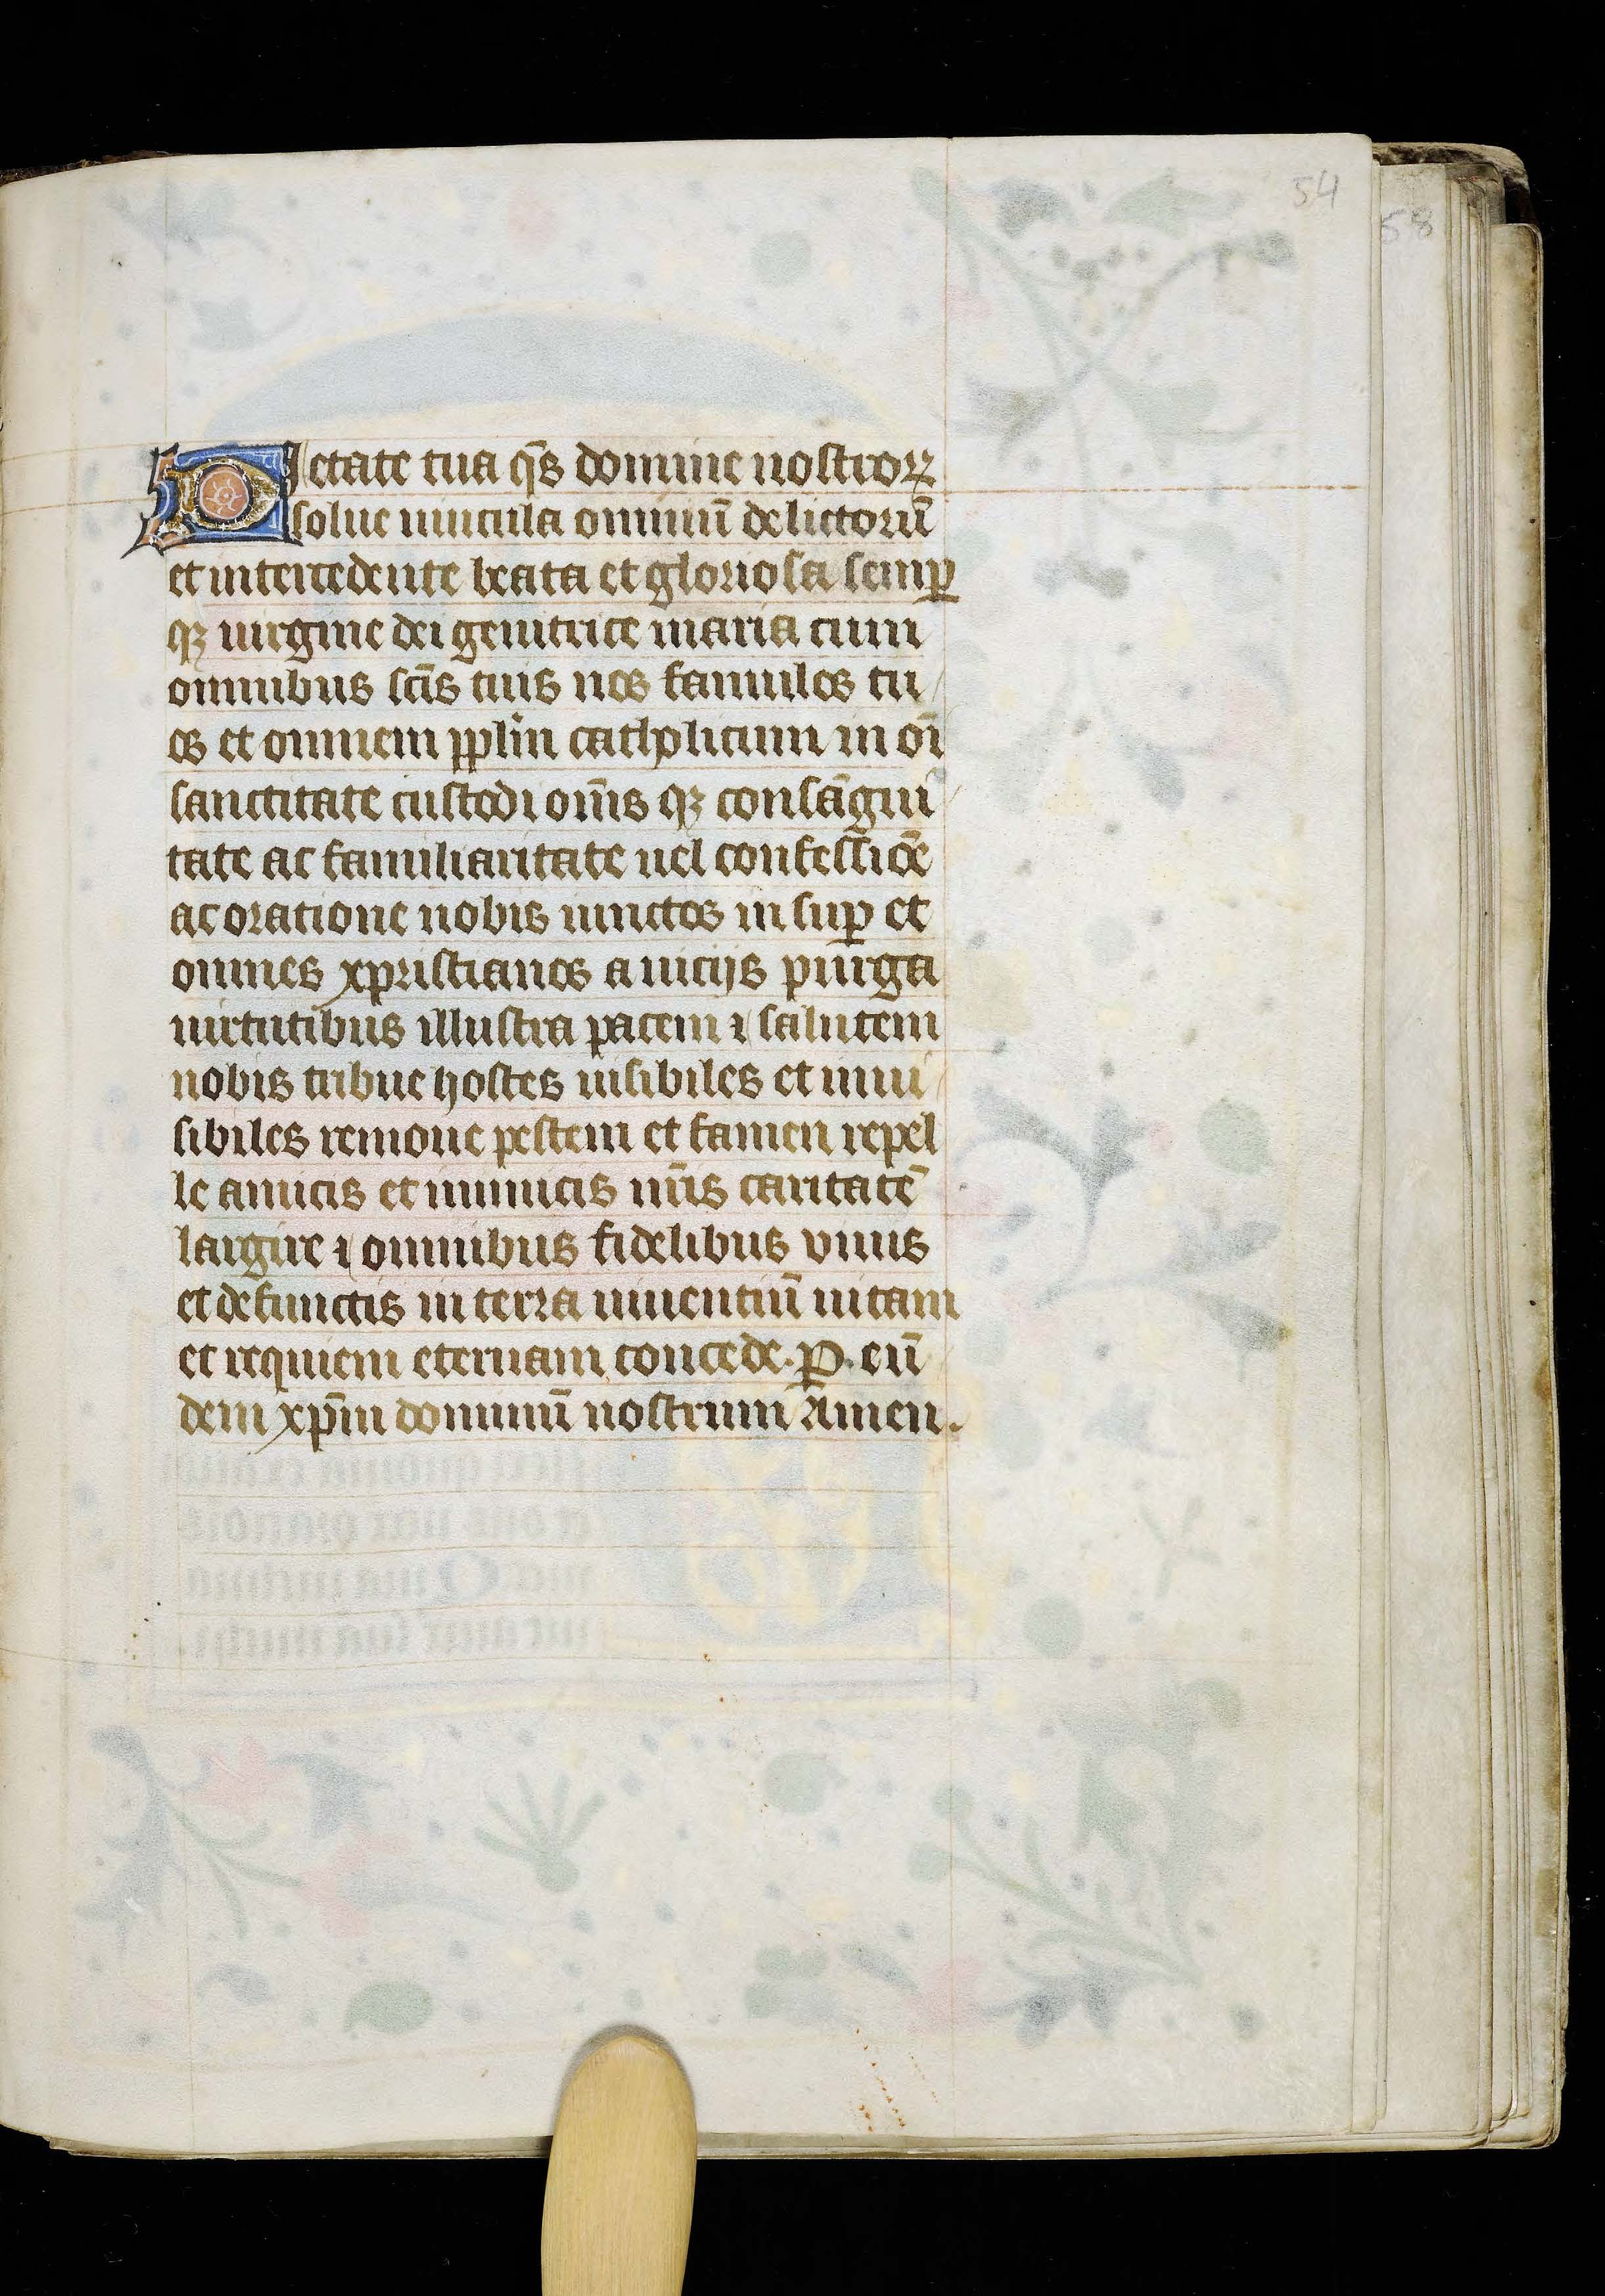 54
58
Pietate tua q̄s domine nostroꝝ
solue uincula omniū delictorū
et intercedente beata et gloriosa semꝑ
qꝫ uirgine dei genitrice maria cum
omnibus scīs tuis nos famulos tu
os et omnem ppl̄m catholicum in oī
sanctitate custodi om̄is qꝫ consāgui
tate ac familiaritate uel confessiōe
ac oratione nobis iunctos in suꝑ et
omnes xpristianos a uicijs purga
uirtutibus illustra pacem ⁊ salutem
nobis tribue hostes uisibiles et inui
sibiles remoue pestem et famen repel
le amicis et inimicis nr̄is caritatē
largire ⁊ omnibus fidelibus viuis
et defunctis in terra uiuentiū uitam
et requiem eternam concede. ꝑ. eū
dem xp̄m dominū nostrum Amen.